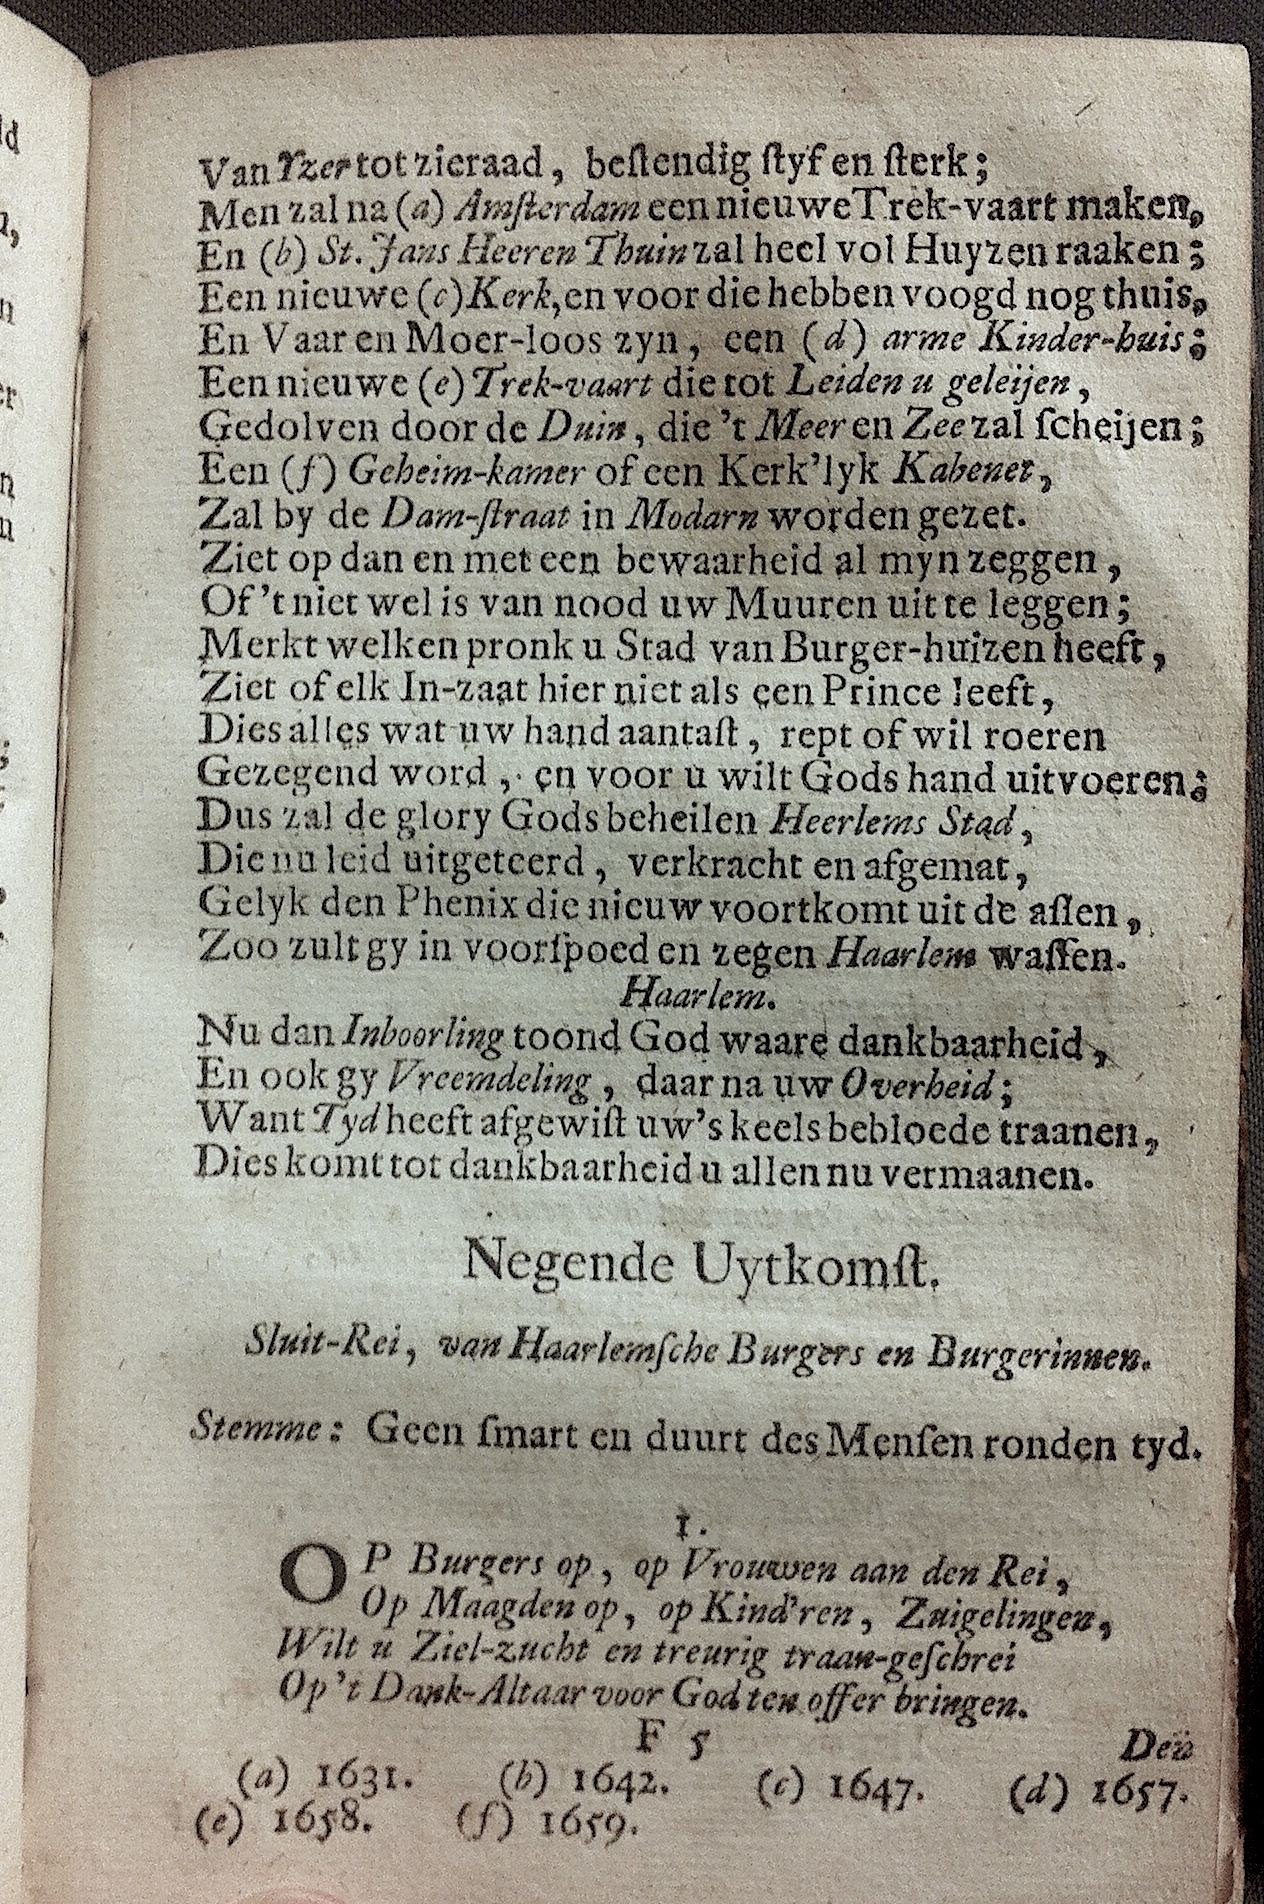 Van Yzer tot zieraad, beſtendig ſtyf en ſterk;
Men zal na (a) Amſterdam een nieuwe Trek-vaart maken,
En (b) St. Jans Heeren Thuin zal heel vol Huyzen raaken;
Een nieuwe (c) Kerk, en voor die hebben voogd nog thuis,
En Vaar en Moer-loos zyn, een (d) arme Kinder-huis;
Een nieuwe (e) Trek-vaart die tot Leiden u geleijen,
Gedolven door de Duin, die 't Meer en Zee zal ſcheijen;
Een (f) Geheim-kamer of een Kerk'lyk Kabenet,
Zal by de Dam-ſtraat in Modarn worden gezet.
Ziet op dan en met een bewaarheid al myn zeggen,
Of 't niet wel is van nood uw Muuren uit te leggen;
Merkt welken pronk u Stad van Burger-huizen heeft,
Ziet of elk In-zaat hier niet als een Prince leeft,
Dies alles wat uw hand aantaſt, rept of wil roeren
Gezegend word, en voor u wilt Gods hand uitvoeren;
Dus zal de glory Gods beheilen Heerlems Stad,
Die nu leid uitgeteerd, verkracht en afgemat,
Gelyk den Phenix die nieuw voortkomt uit de aſſen,
Zoo zult gy in voorſpoed en zegen Haarlem waſſen.
Haarlem.
Nu dan Inboorling toond God waare dankbaarheid,
En ook gy Vreemdeling, daar na uw Overheid;
Want Tyd heeft afgewiſt uw's keels bebloede traanen,
Dies komt tot dankbaarheid u allen nu vermaanen.
Negende Uytkomſt.
Sluit-Rei, van Haarlemſche Burgers en Burgerinnen.
Stemme: Geen ſmart en duurt des Menſen ronden tyd.
1.
OP Burgers op, op Vrouwen aan den Rei,
Op Maagden op, op Kind'ren, Zuigelingen,
Wilt u Ziel-zucht en treurig traan-geſchrei
Op 't Dank-Altaar voor God ten offer bringen.
F 5 Den
(a) 1631. (b) 1642. (c) 1647. (d) 1657.
(e) 1658. (f) 1659.